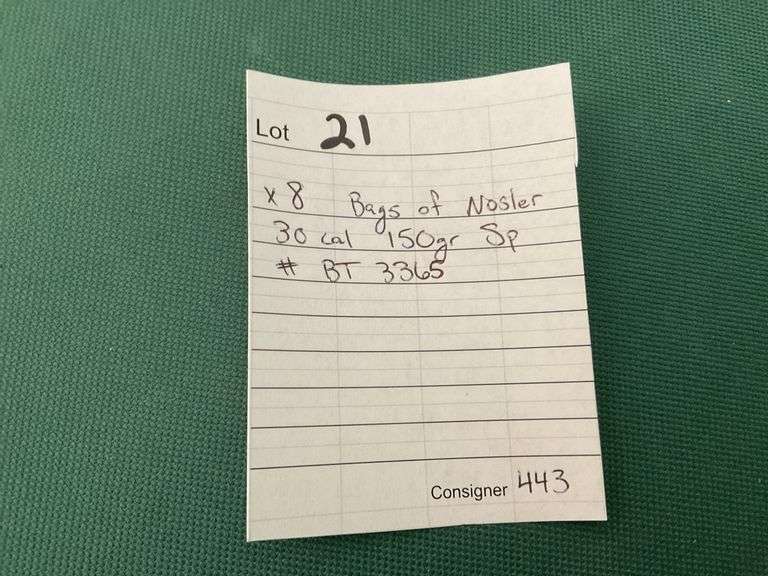 Lot 21
x 8 Bags of Nosler
30 cal 150gr Sp
# BT 3365
Consigner 443